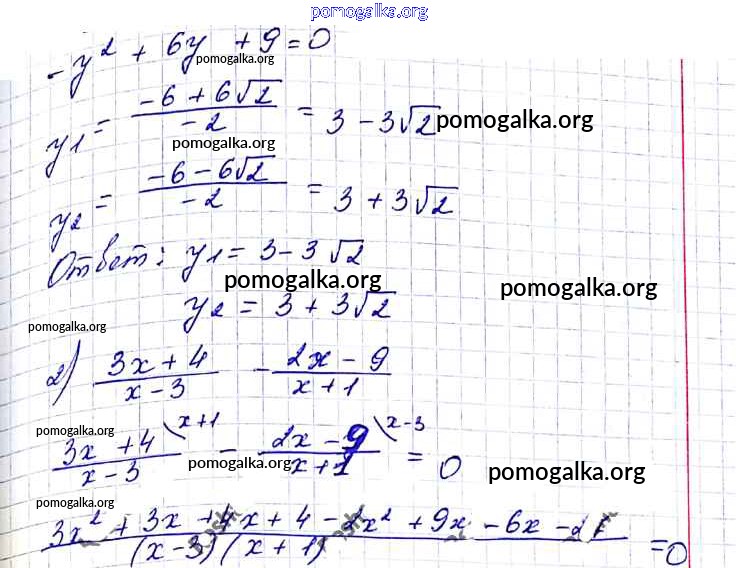 pomogalka.org
-y² + 6y + 9 = 0
pomogalka.org
y1 = (-6 + 6√2)/(-2) = 3 - 3√2
pomogalka.org
pomogalka.org
y2 = (-6 - 6√2)/(-2) = 3 + 3√2
Ответ: y1 = 3 - 3√2
pomogalka.org
pomogalka.org
y2 = 3 + 3√2
pomogalka.org
2) (3x + 4)/(x - 3) - (2x - 9)/(x + 1)
pomogalka.org
(3x + 4)/(x - 3) \x+1 - (2x - 9)/(x + 1) \x-3 = 0
pomogalka.org
pomogalka.org
pomogalka.org
(3x² + 3x + 4x + 4 - 2x² + 9x - 6x - 2)/((x - 3)(x + 1)) = 0